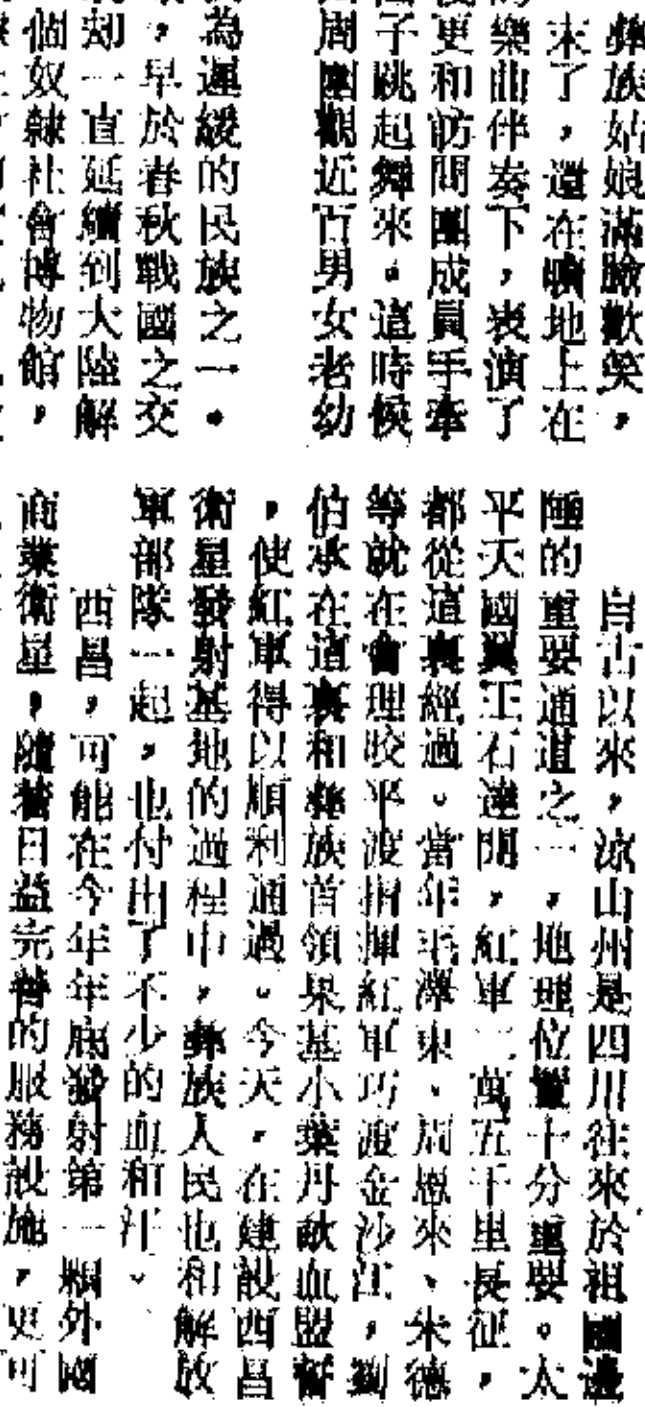 彝族姑娘滿臉歡笑，
末了，還在曠地上在
樂曲伴奏下，表演了
更和訪問團成員手牽
子跳起舞來。這時候
周圍觀近百男女老幼
為遲緩的民族之一。
，早於春秋戰國之交
却一直延續到大陸解
個奴隸社會博物館，
自古以來，涼山州是四川往來於祖國邊
陲的重要通道之一，地理位置十分重要。太
平天國翼王石達開，紅軍二萬五千里長征，
都從這裏經過。當年毛澤東、周恩來、朱德
等就在會理皎平渡指揮紅軍巧渡金沙江，劉
伯承在這裏和彝族首領果基小葉丹歃血盟誓
，使紅軍得以順利通過。今天，在建設西昌
衛星發射基地的過程中，彝族人民也和解放
軍部隊一起，也付出了不少的血和汗。
西昌，可能在今年年底發射第一顆外國
商業衛星，隨着日益完善的服務設施，更可